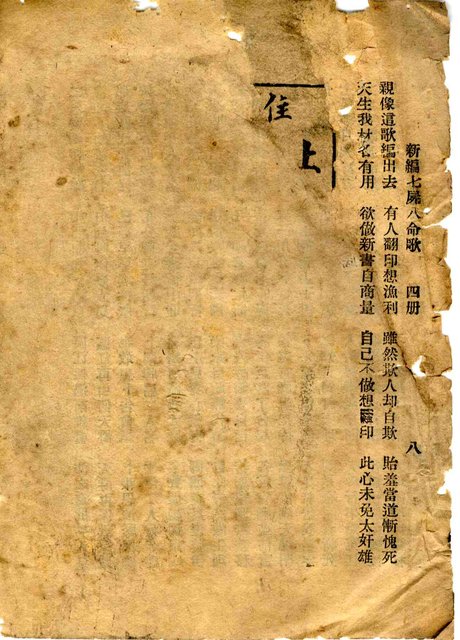 新編七屍八命歌 四册 八
親像這歌編出去 有人翻印想漁利 雖然欺人却自欺 貽羞當道慚愧死
天生我材必有用 欲做新書自商量 自己不做想翻印 此心未免太奸雄
住
上